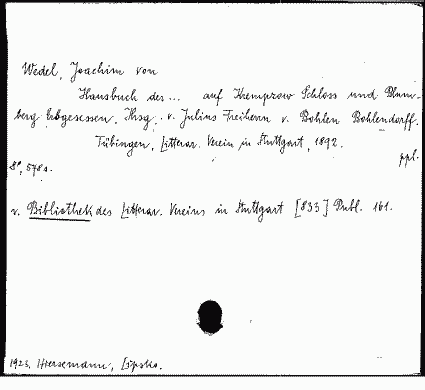 Wedel, Joachim von
Hausbuch des ... auf Krempzow Schloss und Blum-
berg Erbgesessen. Hrsg. v. Julius Freiherrn v. Bohlen Bohlendorff.
Tübingen, Litterar. Verein in Stuttgart, 1892.
ppl.
8°, 578 s.
v. Bibliothek des Litterar. Vereins in Stuttgart [833] Publ. 161.
1923. Hiersemann, Lipsko.